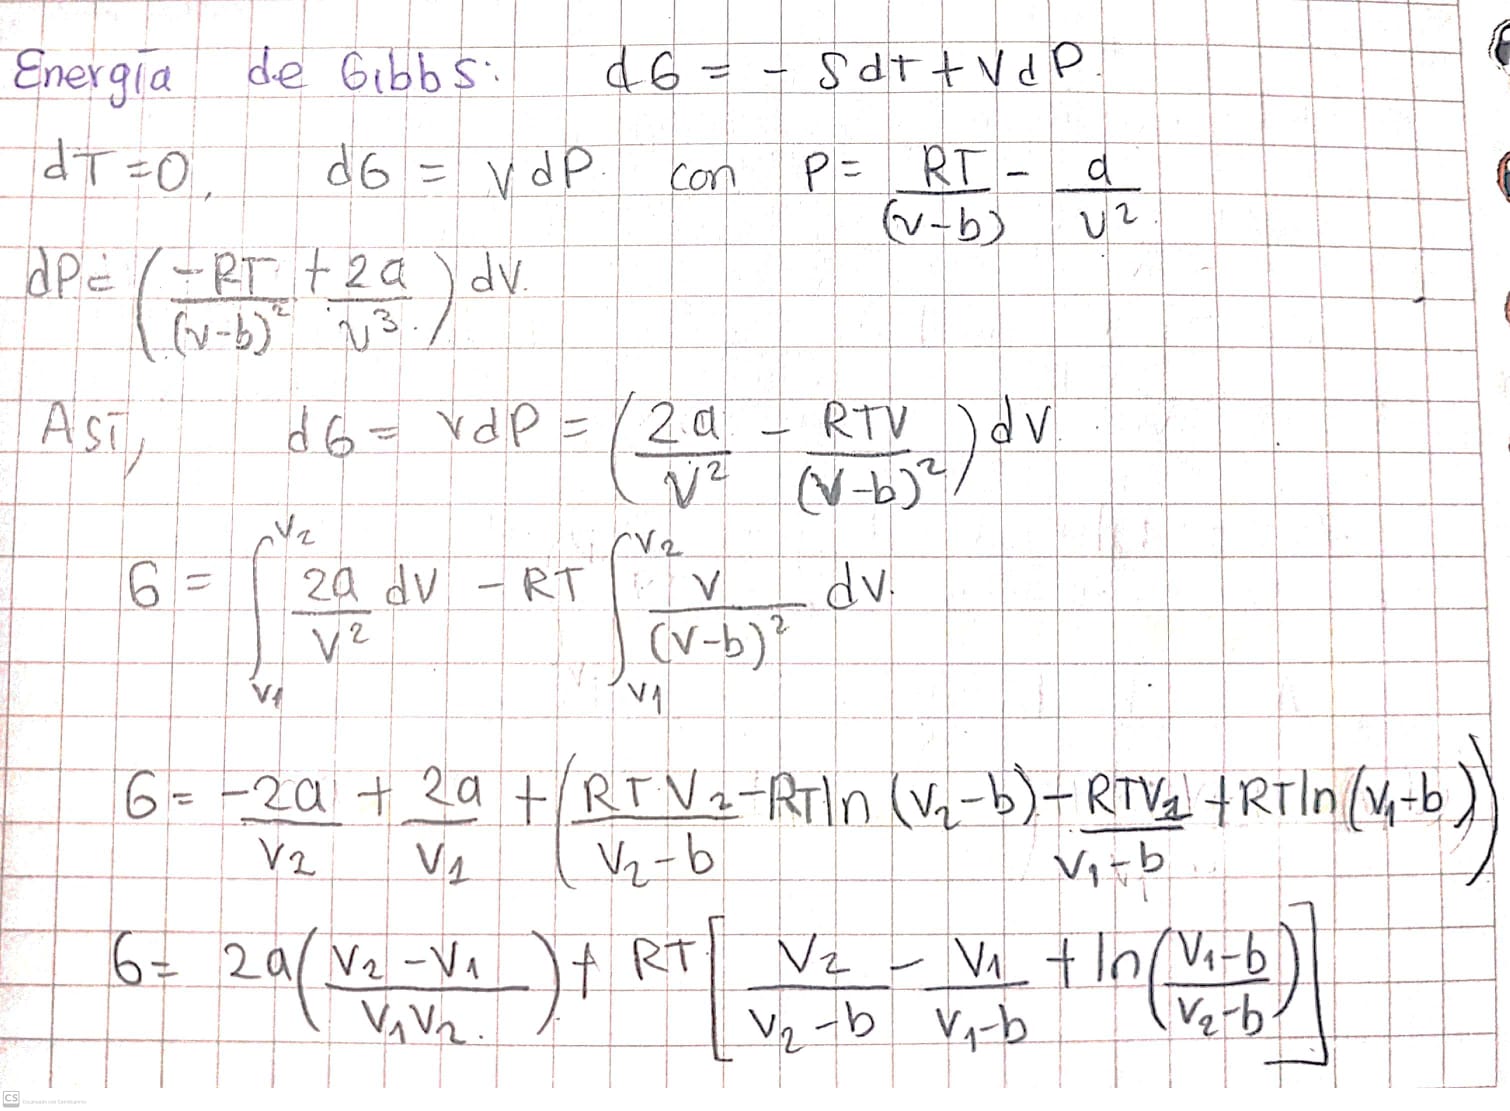 Energía de Gibbs: dG = - SdT + VdP.
dT=0, dG = vdP. con P = RT/(v-b) - a/v²
dP = (-RT/(v-b)² + 2a/v³) dv.
Así, dG = vdP = (2a/v² - RTV/(v-b)²) dv.
G = ∫_{v1}^{v2} 2a/v² dv - RT ∫_{v1}^{v2} v/(v-b)² dv.
G = -2a/v2 + 2a/v1 + (RTV2/(v2-b) - RTln(v2-b) - RTV1/(v1-b) + RTln(v1-b))
G = 2a((v2-v1)/(v1v2)) + RT[v2/(v2-b) - v1/(v1-b) + ln((v1-b)/(v2-b))]
CS